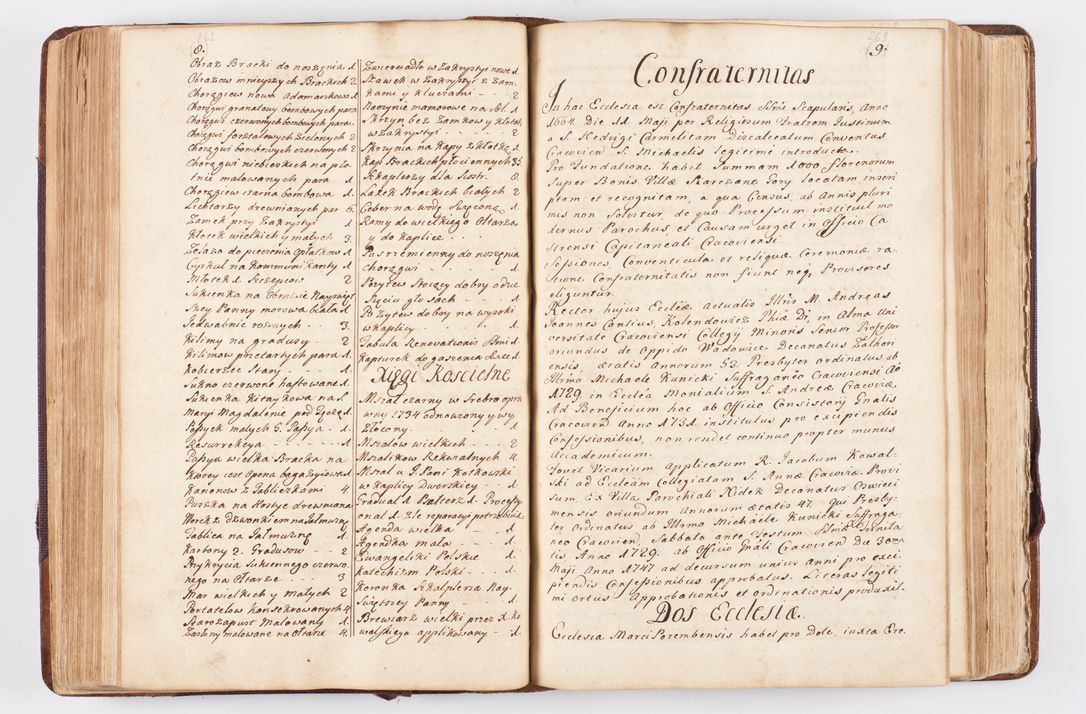 262
8.
Obraz Bracki do noszęnia 1
Obrazow mnieyszych Brackich 2
Chorągiew nowa adamaszkowa 1
Chorągwi granatowy bombowych para
Chorągwi czerwonych bombowych para
Chorągwi forsztatowych zielonych 2
Chorągwi bombowych czerwonych 2
Chorągwi niebieskich na płó
tnie malowanych para 1
Chorągiew czarna bombowa 1.
Lichtarzy drewnianych par 6.
Zamek przy Zakrysty 1
Kłotek wielkich y małych 3.
Zelazo do pieczenia Opłatkow 1
Cyrkuł na Kommunikanty 1
Młotek 1 Szczepcow 2
Sukienka na Obrazie Nayświęt
szey Panny morowa biała 1
Jedwabnie rożnych 3.
Kilimy na gradusy 2
Kilimow przetartych para 1.
Kobierzec stary 1.
Sukno czerwone haftowane 1.
Sukienka Kitaykowa na S.
Maryi Magdalenie pod
Passyek małych 5. Passya 1
Resurrekcya 1
Passya wielka Bracka na
Ktorey jest Opona bagazyiowa 1
Kanonow z Tabliczkami 4.
Puszka na Hostye drewniana
Worek z dzwonkiem na Jałmużnę
Tablica na Jałmużnę 1
Kartony 2. Gradusow 2
Przykrycia sukiennego czerwo.
nego na Ołtarze 3
Mar wielkich y małych 2
Portatelow konsekrowanych 4
Baroząpust Malowany 1
Zasłony malowane na Ołtarz 4.
Zwierciadło w Zakrystyi nowe 1.
Stawek w Zakrystyi z Zam.
kami y kluczami 2
Naczynie mamorowe na Sol 1
Skrzyn bez Zamkow y kłotek
w Zakrystyi 2
Skrzynia na Kapy z Kłotką 1
Kap Brackich płociennych 35.
Szkaplerzy dla Siostr. 8
Lasek Brackich białych 2
Ceber na wodę Święconą 1
Ramy do wielkiego Ołtarza
y do kaplice
Pas rzemienny do noszęnia
chorągwi 1.
Pozytew stoiący dobry o dzie
sięciu głosach 1.
Pozytew dobry na wysoki
w kaplicy 1.
Tabula Renovationis SSmi 1
Kapturek do gaszenia Swiec 1
Xięgi Koscielne
Mszał czarny w srebro opra
wny 1734 odnowiony y wy
złocony 1.
Mszałow wielkich 2
Mszalikow Rekwialnych 4
Mszał u J. Pani Kotkowski
w kaplicy Dworskiey 1
Graduał 1. Psałterz 1. Process
onał 1. Złe reparacyi potrzebuią
Agenda wielka 1.
Agendka mała 1
Ewangeliki Polskie 1.
Katechizm Polski 1.
Koronka Szkaplerna Nay.
Świętszey Panny 1.
Brewiarz wielki przez X. Ko
walskiego applikowany 1.
263
9.
Confraternitas
In hac Ecclesia est Confraternitas Ssmi Scapularis, Anno
1664 Die 11 Maji per Religiosum Fratrem Justinum
a S. Hedvigi Carmelitam Discalceatum Conventus
Cracovien S. Michaelis legitime introducta.
Pro Fundatione habet Summam 1000 florenorum
Super Bonis Villæ Karczane Gory locatam inseri
ptam et recognitam, a qua Census, ab Annis pluri
mis non solvitur, de quo Processum instituit mo
dernus Parochus, et Causam urget in Officio Ca
strensi Capitaneali Cracoviensi.
Sessiones, Conventicula, et reliquæ Ceremoniæ ra
tione Confraternitatis non fiunt neq Provisores
eliguntur.
Rector hujus Eccleæ actualis Illris M. Andreas
Joannes Cantius, Kolendowicz Phiæ Dr, in Alma Uni
versitate Cracoviensi Collegij Minoris Senior Professor
oriundus de Oppido Wadowice Decanatus Zathori
ensis, ætatis Annorum 53. Presbyter ordinatus ab
Illrmo Michaele Kunicki Suffraganeo Cracoviensi Ao
1729 in Ecclea Monialium S. Andreæ Cracoviæ.
Ad Beneficium hoc ab Officio Consistorij Gnalis
Cracovien Anno 1731. institutus pro excipiendis
Confessionibus, non rendet continuo propter munus
Academicum.
Fovet Vicarium Applicatum R. Jacobum Kowal-
ski ad Eccleam Collegiatam S. Annæ Cracoviæ Provi
sum. Ex Villa Parochiali Nidek Decanatus Oswieci
mensis oriundum Annorum ætatis 47. qui Presby-
ter Ordinatus ab Illrmo Michaele Kunicki Suffraga-
neo Cracovien, Sabbato ante Festum SSmæ Trinita
tis Anno 1729. ab Officio Gnali Cracovien Die 30ma
Maji Anno 1747 ad decursum unius anni pro exci
piendis Confessionibus approbatus. Literas legiti
mi ortus Approbationis et ordinationis produxit.
Dos Ecclesiæ.
Ecclesia Marci Porembensis habet pro Dote, iuxta Ere.